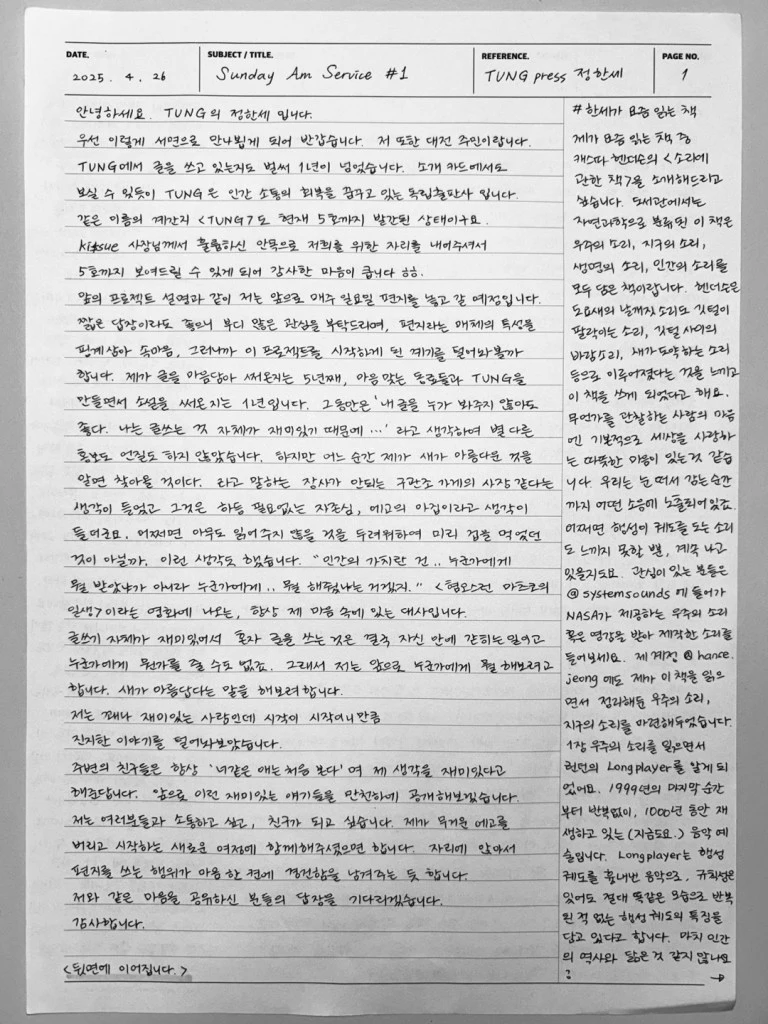 DATE.
2025. 4. 26
SUBJECT / TITLE.
Sunday Am Service #1
REFERENCE.
TUNG press 정한세
PAGE NO.
1
안녕하세요. TUNG의 정한세 입니다.
우선 이렇게 서면으로 만나뵙게 되어 반갑습니다. 저 또한 대전 주민이랍니다.
TUNG에서 글을 쓰고 있는지도 벌써 1년이 넘었습니다. 소개 카드에서도
보실 수 있듯이 TUNG은 인간 소통의 회복을 꿈꾸고 있는 독립출판사 입니다.
같은 이름의 계간지 <TUNG>도 현재 5호까지 발간된 상태이구요.
kissue 사장님께서 훌륭하신 안목으로 저희를 위한 자리를 내어주셔서
5호까지 보여드릴 수 있게 되어 감사한 마음이 큽니다 ㅎㅎ.
앞의 프로젝트 설명과 같이 저는 앞으로 매주 일요일 편지를 놓고 갈 예정입니다.
짧은 답장이라도 좋으니 부디 많은 관심을 부탁드리며, 편지라는 매체의 특성을
핑계삼아 속마음, 그러니까 이 프로젝트를 시작하게 된 계기를 털어놔볼까
합니다. 제가 글을 마음담아 써온지는 5년째, 마음 맞는 동료들과 TUNG을
만들면서 소설을 써온지는 1년입니다. 그동안은 '내 글을 누가 봐주지 않아도
좋다. 나는 글쓰는 것 자체가 재미있기 때문에 …' 라고 생각하여 별 다른
홍보도 언질도 하지 않았습니다. 하지만 어느 순간 제가 새가 아름다운 것을
알면 찾아올 것이다. 라고 말하는 장사가 안되는 구관조 가게의 사장 같다는
생각이 들었고 그것은 하등 필요없는 자존심, 에고의 아집이라고 생각이
들더군요. 어쩌면 아무도 읽어주지 않을 것을 두려워하여 미리 겁을 먹었던
것이 아닐까. 이런 생각도 했습니다. "인간의 가치란 건.. 누군가에게
뭘 받았냐가 아니라 누군가에게.. 뭘 해줬냐는 거겠지." <혐오스런 마츠코의
일생>이라는 영화에 나오는, 항상 제 마음 속에 있는 대사입니다.
글쓰기 자체가 재미있어서 혼자 글을 쓰는 것은 결국 자신 안에 갇히는 일이고
누군가에게 뭔가를 줄 수도 없죠. 그래서 저는 앞으로 누군가에게 뭘 해보려고
합니다. 새가 아름답다는 말을 해보려 합니다.
저는 꽤나 재미있는 사람인데 시작이 시작이니만큼
진지한 이야기를 털어놔보았습니다.
주변의 친구들은 항상 '너같은 애는 처음 본다'며 제 생각을 재미있다고
해준답니다. 앞으로 이런 재미있는 얘기들을 만천하에 공개해보겠습니다.
저는 여러분들과 소통하고 싶고, 친구가 되고 싶습니다. 제가 무거운 에고를
버리고 시작하는 새로운 여정에 함께해주셨으면 합니다. 자리에 앉아서
편지를 쓰는 행위가 마음 한 켠에 경건함을 남겨주는 듯 합니다.
저와 같은 마음을 공유하신 분들의 답장을 기다리겠습니다.
감사합니다.
<뒷면에 이어집니다.>
# 한세가 요즘 읽는 책
제가 요즘 읽는 책 중
캐스파 헨더슨의 <소리에
관한 책>을 소개해드리고
싶습니다. 도서관에서는
자연과학으로 분류된 이 책은
우주의 소리, 지구의 소리,
생명의 소리, 인간의 소리를
모두 담은 책이랍니다. 헨더슨은
도요새의 날갯짓 소리도 깃털이
팔락이는 소리, 깃털 사이의
바람소리, 새가 도약하는 소리
등으로 이루어졌다는 것을 느끼고
이 책을 쓰게 되었다고 해요.
무언가를 관찰하는 사람의 마음
엔 기본적으로 세상을 사랑하
는 따뜻한 마음이 있는 것 같습
니다. 우리는 눈 떠서 감는 순간
까지 어떤 소음에 노출되어있죠.
어쩌면 행성이 궤도를 도는 소리
도 느끼지 못할 뿐, 계속 나고
있을지도요. 관심이 있는 분들은
@systemsounds 에 들어가
NASA가 제공하는 우주의 소리
혹은 영감을 받아 제작한 소리를
들어보세요. 제 계정 @hance.
jeong 에도 제가 이 책을 읽으
면서 정리해둔 우주의 소리,
지구의 소리를 마련해두었습니다.
1장 우주의 소리를 읽으면서
런던의 Longplayer를 알게 되
었어요. 1999년의 마지막 순간
부터 반복없이, 1000년 동안 재
생하고 있는 (지금도요.) 음악 예
술입니다. Longplayer는 행성
궤도를 흉내낸 음악으로, 규칙성은
있어도 절대 똑같은 모습으로 반복
된 적 없는 행성 궤도의 특징을
담고 있다고 합니다. 마치 인간
의 역사와 닮은 것 같지 않나요
? →